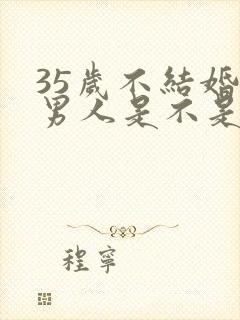 35歲不結婚
男人是不是
程寧